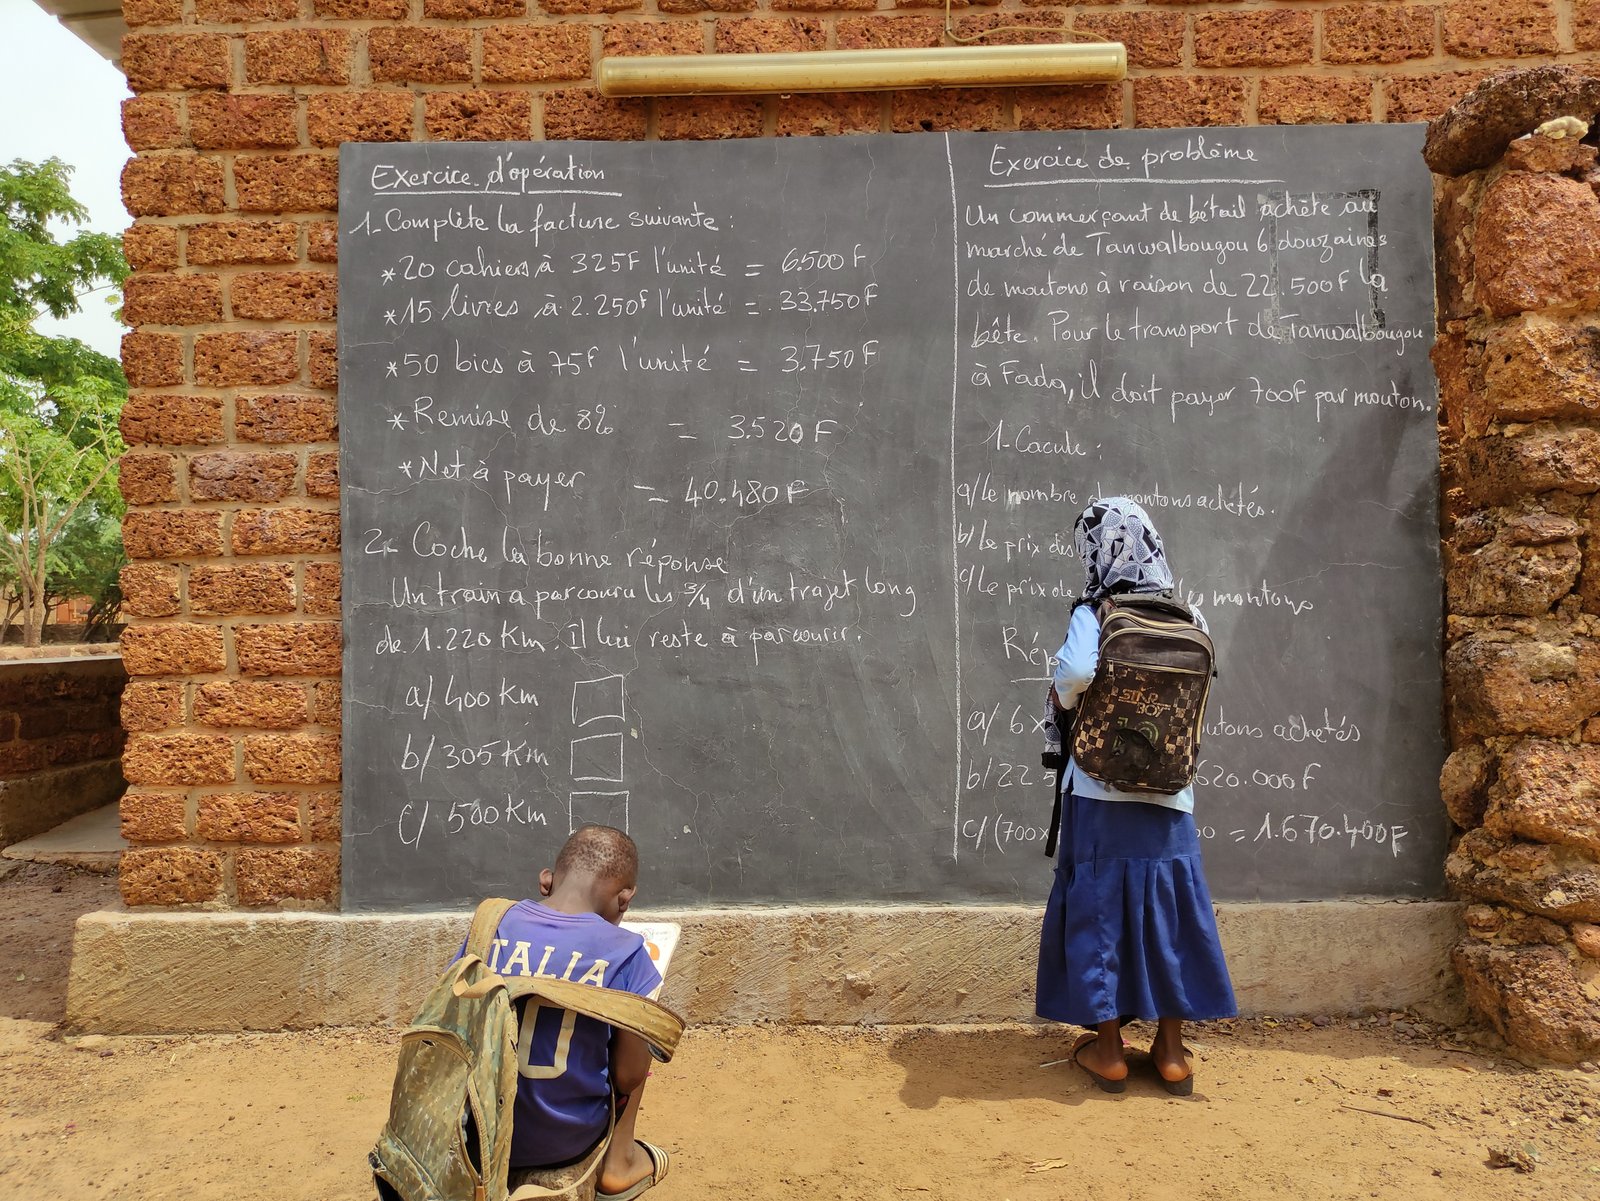 Exercice d'opération
1- Complète la facture suivante :
* 20 cahiers à 325F l'unité = 6.500 F
* 15 livres à 2.250F l'unité = 33.750F
* 50 bics à 75F l'unité = 3.750F
* Remise de 8% = 3.520 F
* Net à payer = 40.480 F
2- Coche la bonne réponse
Un train a parcouru les 3/4 d'un trajet long
de 1.220 Km. Il lui reste à parcourir.
a/ 400 Km
b/ 305 Km
c/ 500 Km
Exercice de problème
Un commerçant de bétail achète au
marché de Tanwalbougou 6 douzaines
de moutons à raison de 22 500F la
bête. Pour le transport de Tanwalbougou
à Fada, il doit payer 700F par mouton.
1- Cacule :
a/ le nombre moutons achetés.
b/ le prix des
c/ le prix de moutons
Rép
a/ 6 x achetés
b/ 22 5 620.000F
c/ (700x 00 = 1.670.400F
ITALIA
STAR
BOY